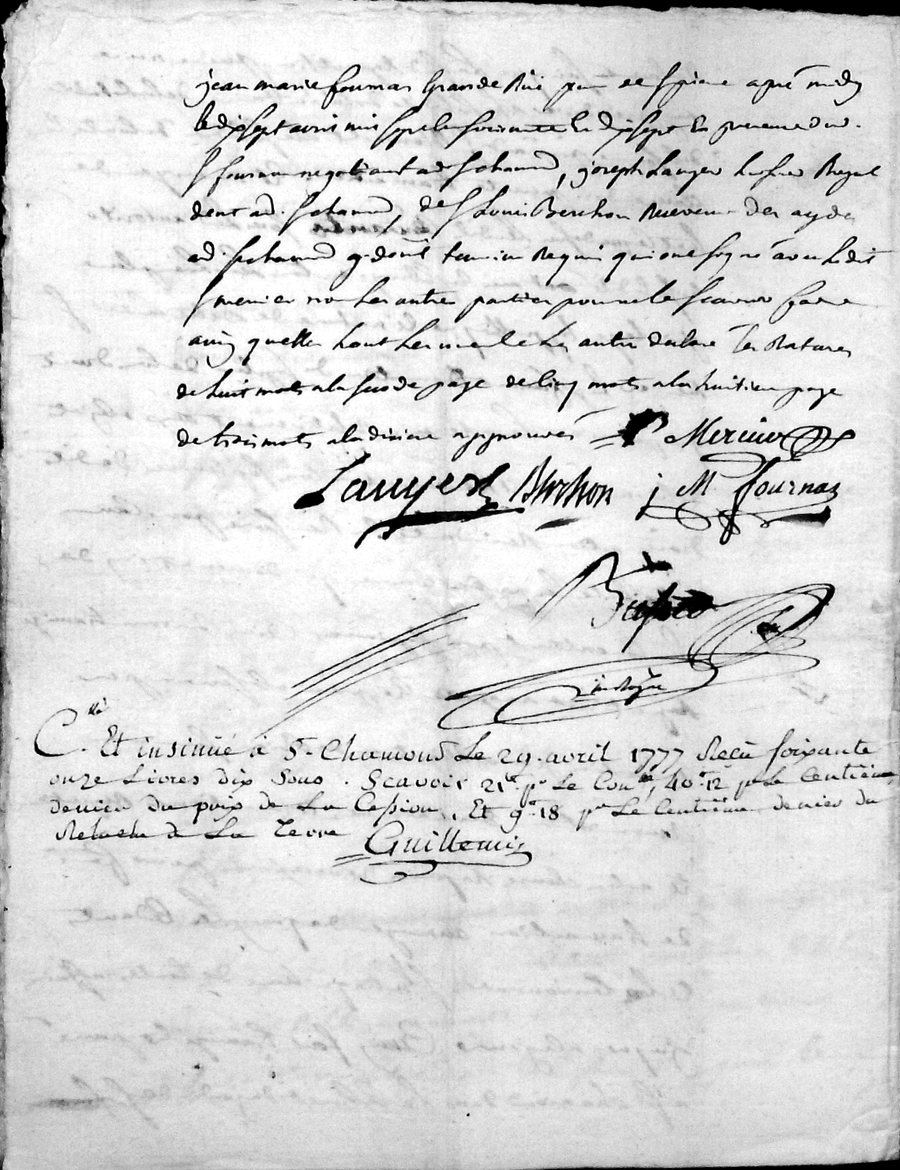 jean marie fournas Grande Rüe après midy
le dix sept avril mil sept cent soixante et dix sept en presence du
S. fournas negotiant a St chamond, joseph Lauyer
dent a St chamond, et S. Louis Berchon Receveur des aydes
a St chamond témoins Requis qui ont signé avec ledit
S. mercier non les autres parties pour ne le scavoir faire
ainsy quelles l'ont les unes et les autres declaré Les Ratures
de huit mots a la page de cinq mots a la huitieme page
de trois mots a la dixieme approuvées Mercier
Lauyer Berchon j M fournas
C.lé Et insinüé à St Chamond Le 29 avril 1777 Reçu soixante
onze Livres dix sous. Scavoir 21 pr Le Conlle, 40 12 pr Le Centième
denier du prix de La Cession, Et 9 18 pr Le Centième denier du
Relache de La Terre Guillemin